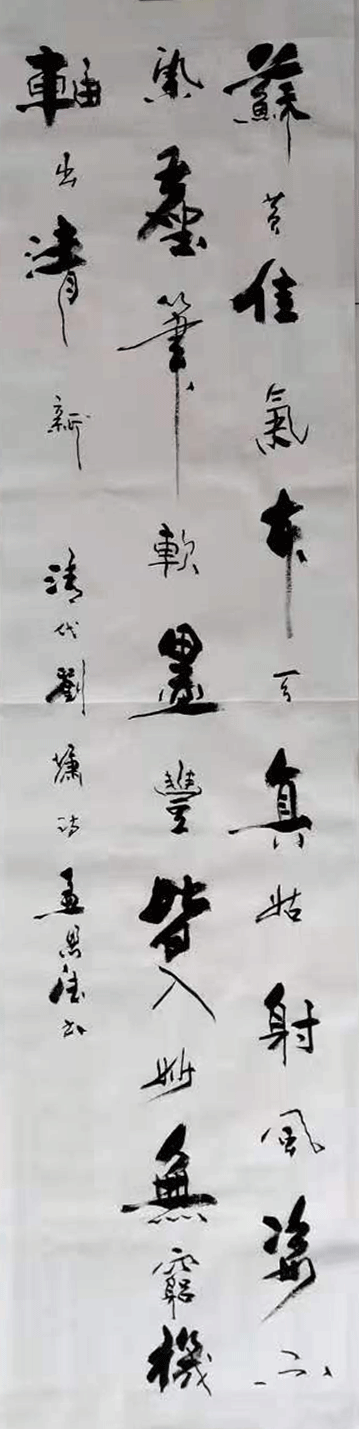 蘇黄佳氣本天真姑射風姿不
染塵筆軟墨豐皆入妙無窮機
軸出清新 清代劉墉詩 孟 书